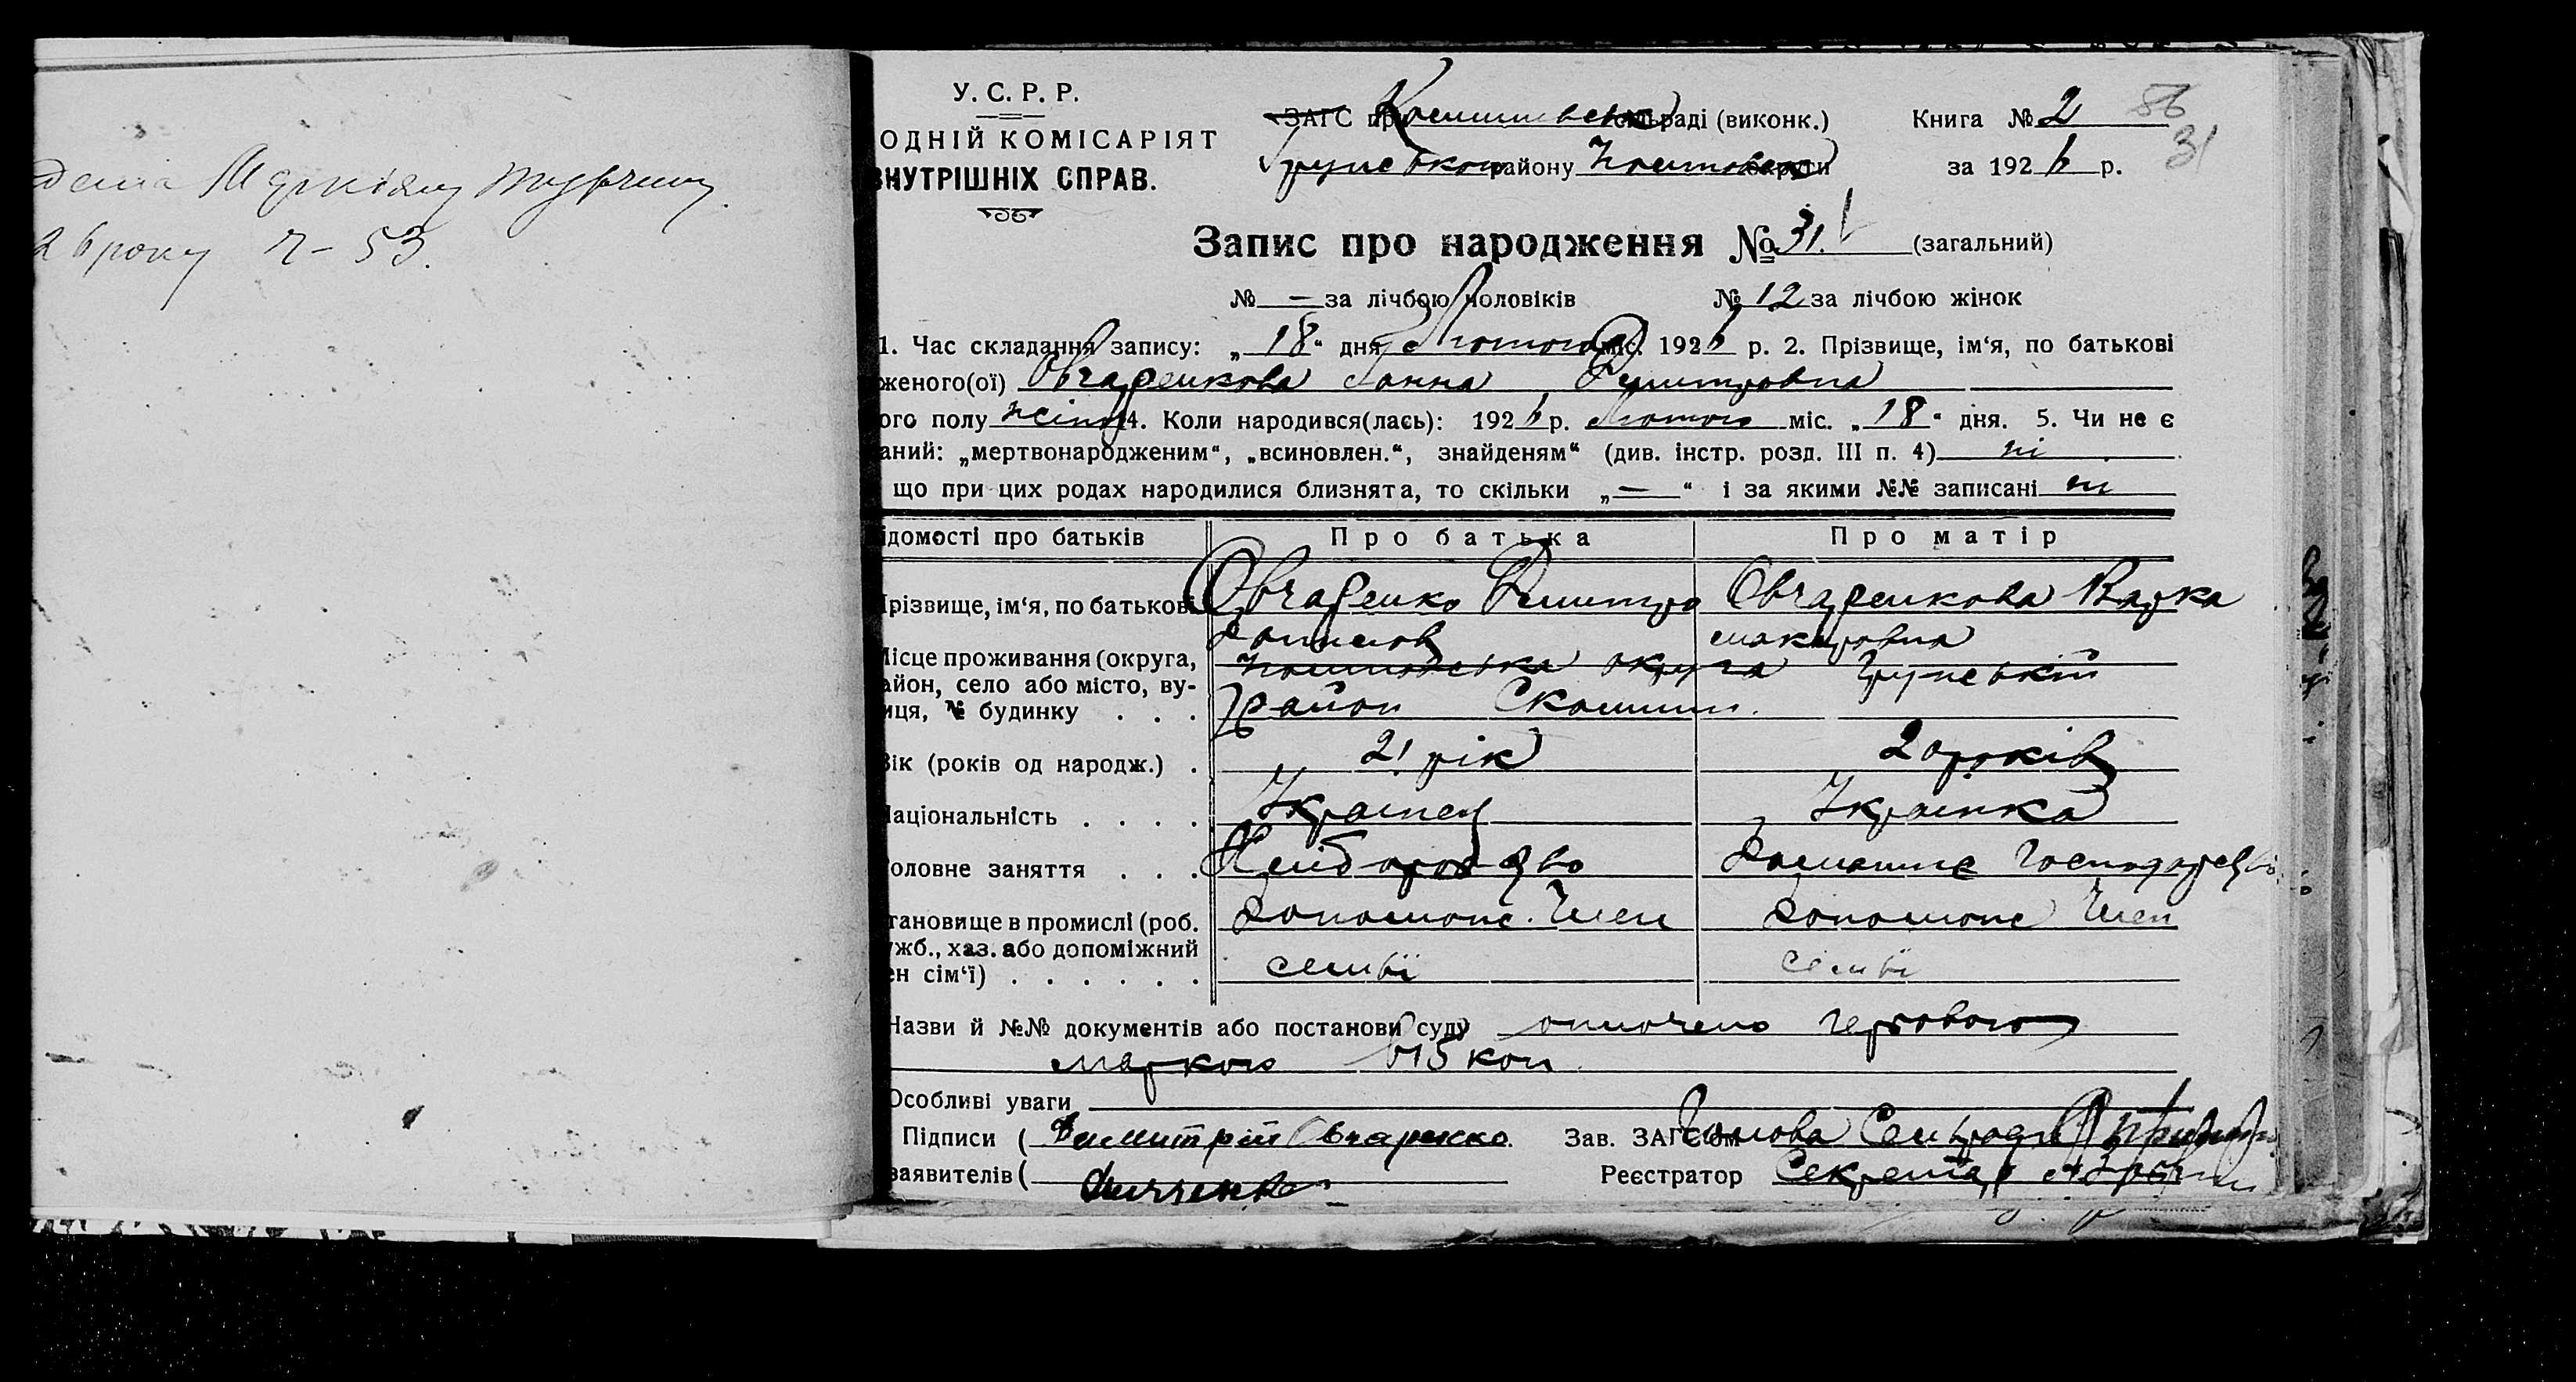 Маркіяну
26 року Ч – 53.
У. С. Р. Р.
ОДНІЙ КОМІСАРІЯТ
ВНУТРІШНІХ СПРАВ.
ЗАГС при раді (виконк.) Книга № 2
району округи за 1926 р.
31
Запис про народження № 31. (загальний)
№ — за лічбою чоловіків № 12 за лічбою жінок
1. Час складання запису: „18“ дня Лютого міс. 1926 р. 2. Прізвище, ім‘я, по батькові
женого(ої) Овчаренкова Ганна Дмитровна
ого полу жіноч 4. Коли народився(лась): 1926 р. Лютого міс. „18“ дня. 5. Чи не є
аний: „мертвонародженим“, „всиновлен.“, знайденям“ (див. інстр. розд. III п. 4) ні
що при цих родах народилися близнята, то скільки „—“ і за якими №№ записані ні
ідомості про батьків Про батька Про матір
Прізвище, ім‘я, по батькові Овчаренко Дмитро Овчаренкова Варка
макаровна
Місце проживання (округа, округа Грунський
айон, село або місто, ву- район
иця, № будинку . . .
Вік (років од народж.) . 21 рік 20 років
Національність . . . . Українец Українка
Головне заняття . . . Хліборобство Домашнє Господарство
тановище в промислі (роб. допоможе. Член допоможе Член
ужб., хаз. або допоміжний
ен сім‘ї) . . . . . . семьї семьї
Назви й №№ документів або постанови суду оплочено гербовою
маркою в 15 коп
Особливі уваги
Підписи ( Димитрій Овчаренко. Зав. ЗАГСом Голова Сельради
заявителів ( Реєстратор Секретар